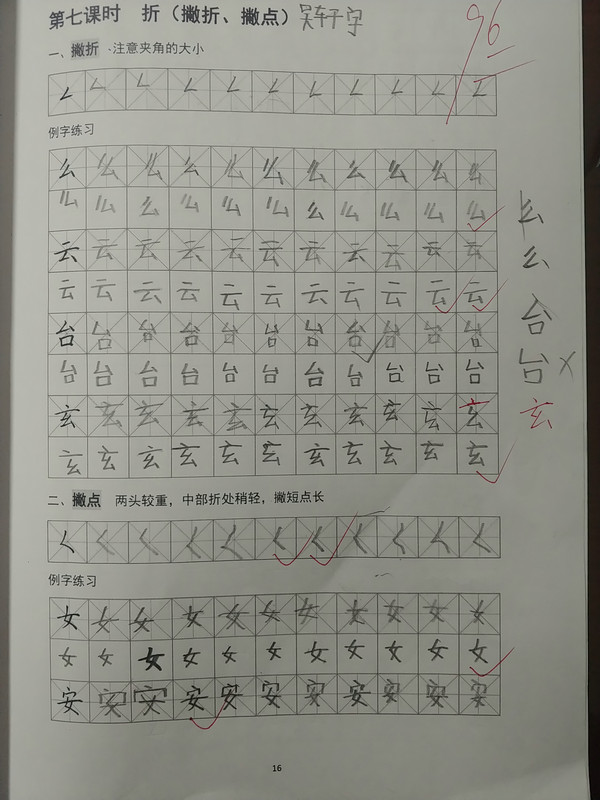 第七课时 折（撇折、撇点）
96
一、撇折 ·注意夹角的大小
例字练习
么 么 么 么 么 么 么 么 么 么 么
么 么 么 么 么 么 么 么 么 么 么
云 云 云 云 云 云 云 云 云 云 云
云 云 云 云 云 云 云 云 云 云 云
台 台 台 台 台 台 台 台 台 台 台
台 台 台 台 台 台 台 台 台 台 台
玄 玄 玄 玄 玄 玄 玄 玄 玄 玄 玄
玄 玄 玄 玄 玄 玄 玄 玄 玄 玄 玄
么
么
台
台
玄
二、撇点 两头较重，中部折处稍轻，撇短点长
例字练习
女 女 女 女 女 女 女 女 女 女 女
女 女 女 女 女 女 女 女 女 女 女
安 安 安 安 安 安 安 安 安 安 安
16